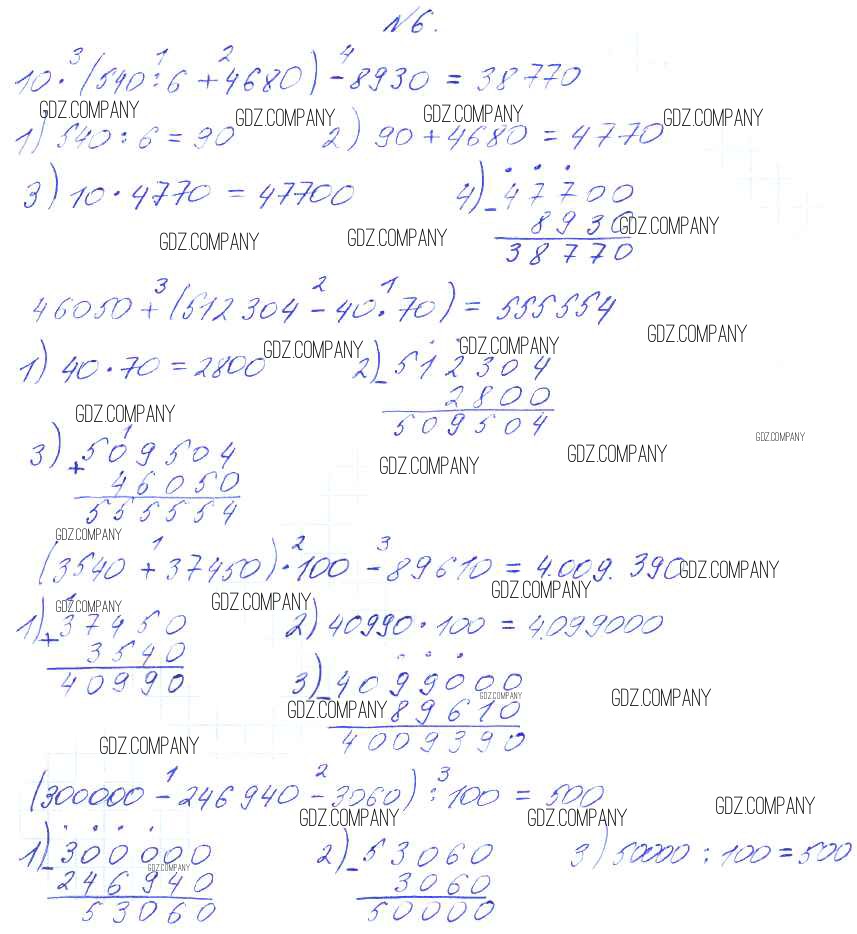 №6.
10 · (540 : 6 + 4680) - 8930 = 38770
3 1 2 4
GDZ.COMPANY GDZ.COMPANY GDZ.COMPANY GDZ.COMPANY
1) 540 : 6 = 90 2) 90 + 4680 = 4770
3) 10 · 4770 = 47700 4) - 47700
8930 GDZ.COMPANY
GDZ.COMPANY GDZ.COMPANY 38770
3 2 1
46050 + (512304 - 40 · 70) = 555554
GDZ.COMPANY GDZ.COMPANY GDZ.COMPANY
1) 40 · 70 = 2800 2) - 512304
2800
GDZ.COMPANY 509504
1 GDZ.COMPANY
3) + 509504 GDZ.COMPANY GDZ.COMPANY
46050
555554
GDZ.COMPANY
1 2 3
(3540 + 37450) · 100 - 89610 = 4.009.390 GDZ.COMPANY
GDZ.COMPANY GDZ.COMPANY GDZ.COMPANY
1) + 37450 2) 40990 · 100 = 4.099000
3540
40990 3) - 4099000
GDZ.COMPANY GDZ.COMPANY
GDZ.COMPANY 89610
GDZ.COMPANY 4009390
1 2 3
(300000 - 246940 - 3060) : 100 = 500
GDZ.COMPANY GDZ.COMPANY GDZ.COMPANY
1) - 300000 2) - 53060 3) 50000 : 100 = 500
GDZ.COMPANY
246940 3060
53060 50000